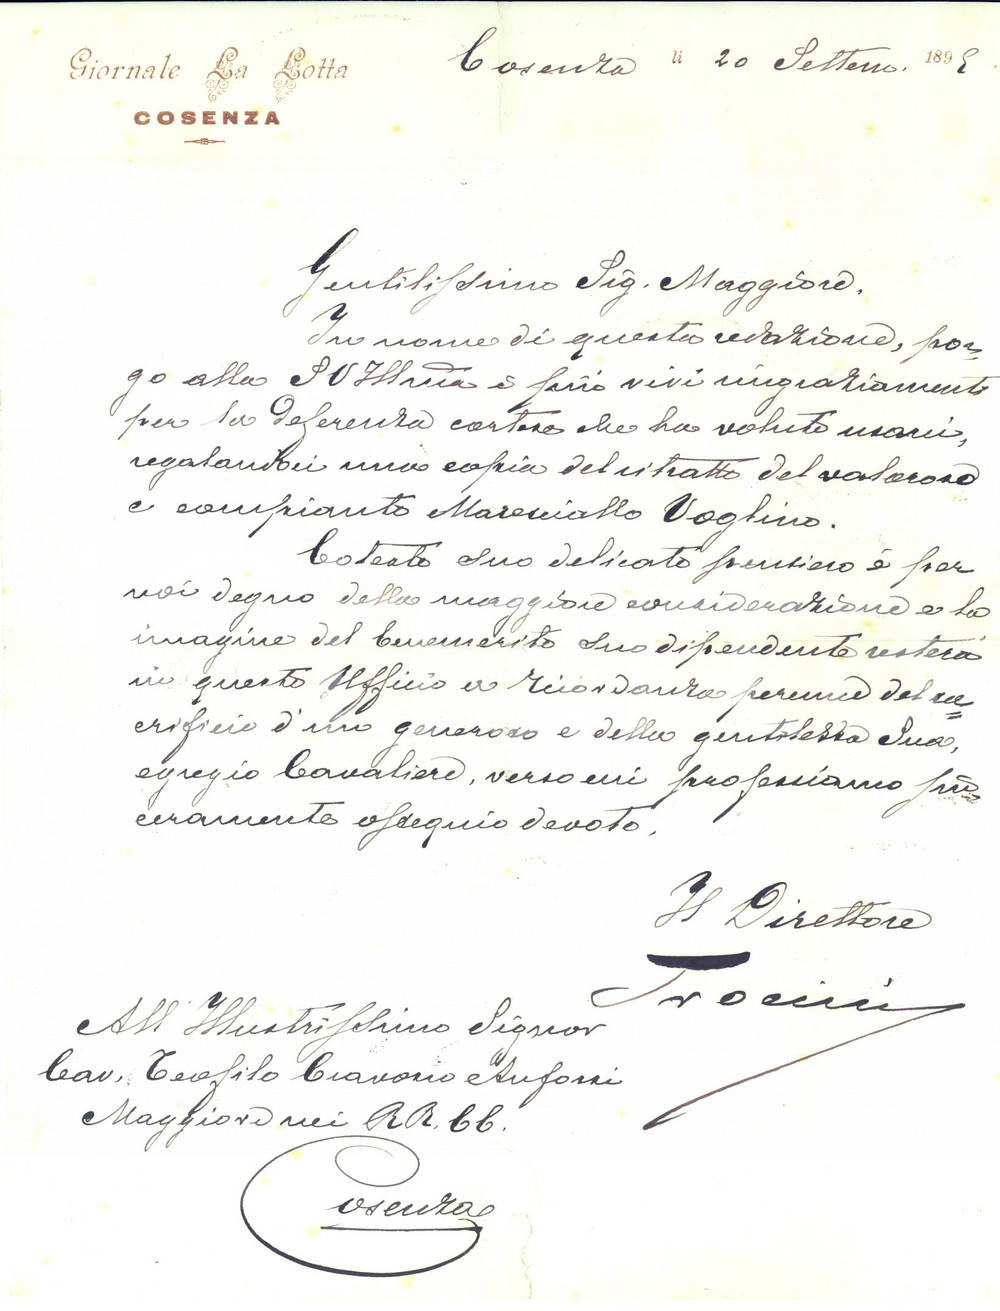 Giornale La Lotta
COSENZA
Cosenza li 20 Settem. 189
Gentilissimo Sig. Maggiore.
In nome di questa redazione, por-
go alla S V Ill.ma i più vivi ringraziamenti
per la deferenza cortese che ha voluto usarci,
regalandoci una copia del ritratto del valoroso
e compianto Maresciallo Voglino.
Cotesto suo delicato pensiero è per
noi degno della maggiore considerazione e la
imagine del benemerito suo dipendente resterà
in questo Ufficio a ricordanza perenne del sa=
crificio d'un generoso e della gentilezza Sua,
egregio Cavaliere, verso cui professiamo sin-
ceramente ossequio devoto.
Il Direttore
Trocini
All'Illustrissimo Signor
Cav. Teofilo Cravosio Anfossi
Maggiore nei RR. CC.
Cosenza